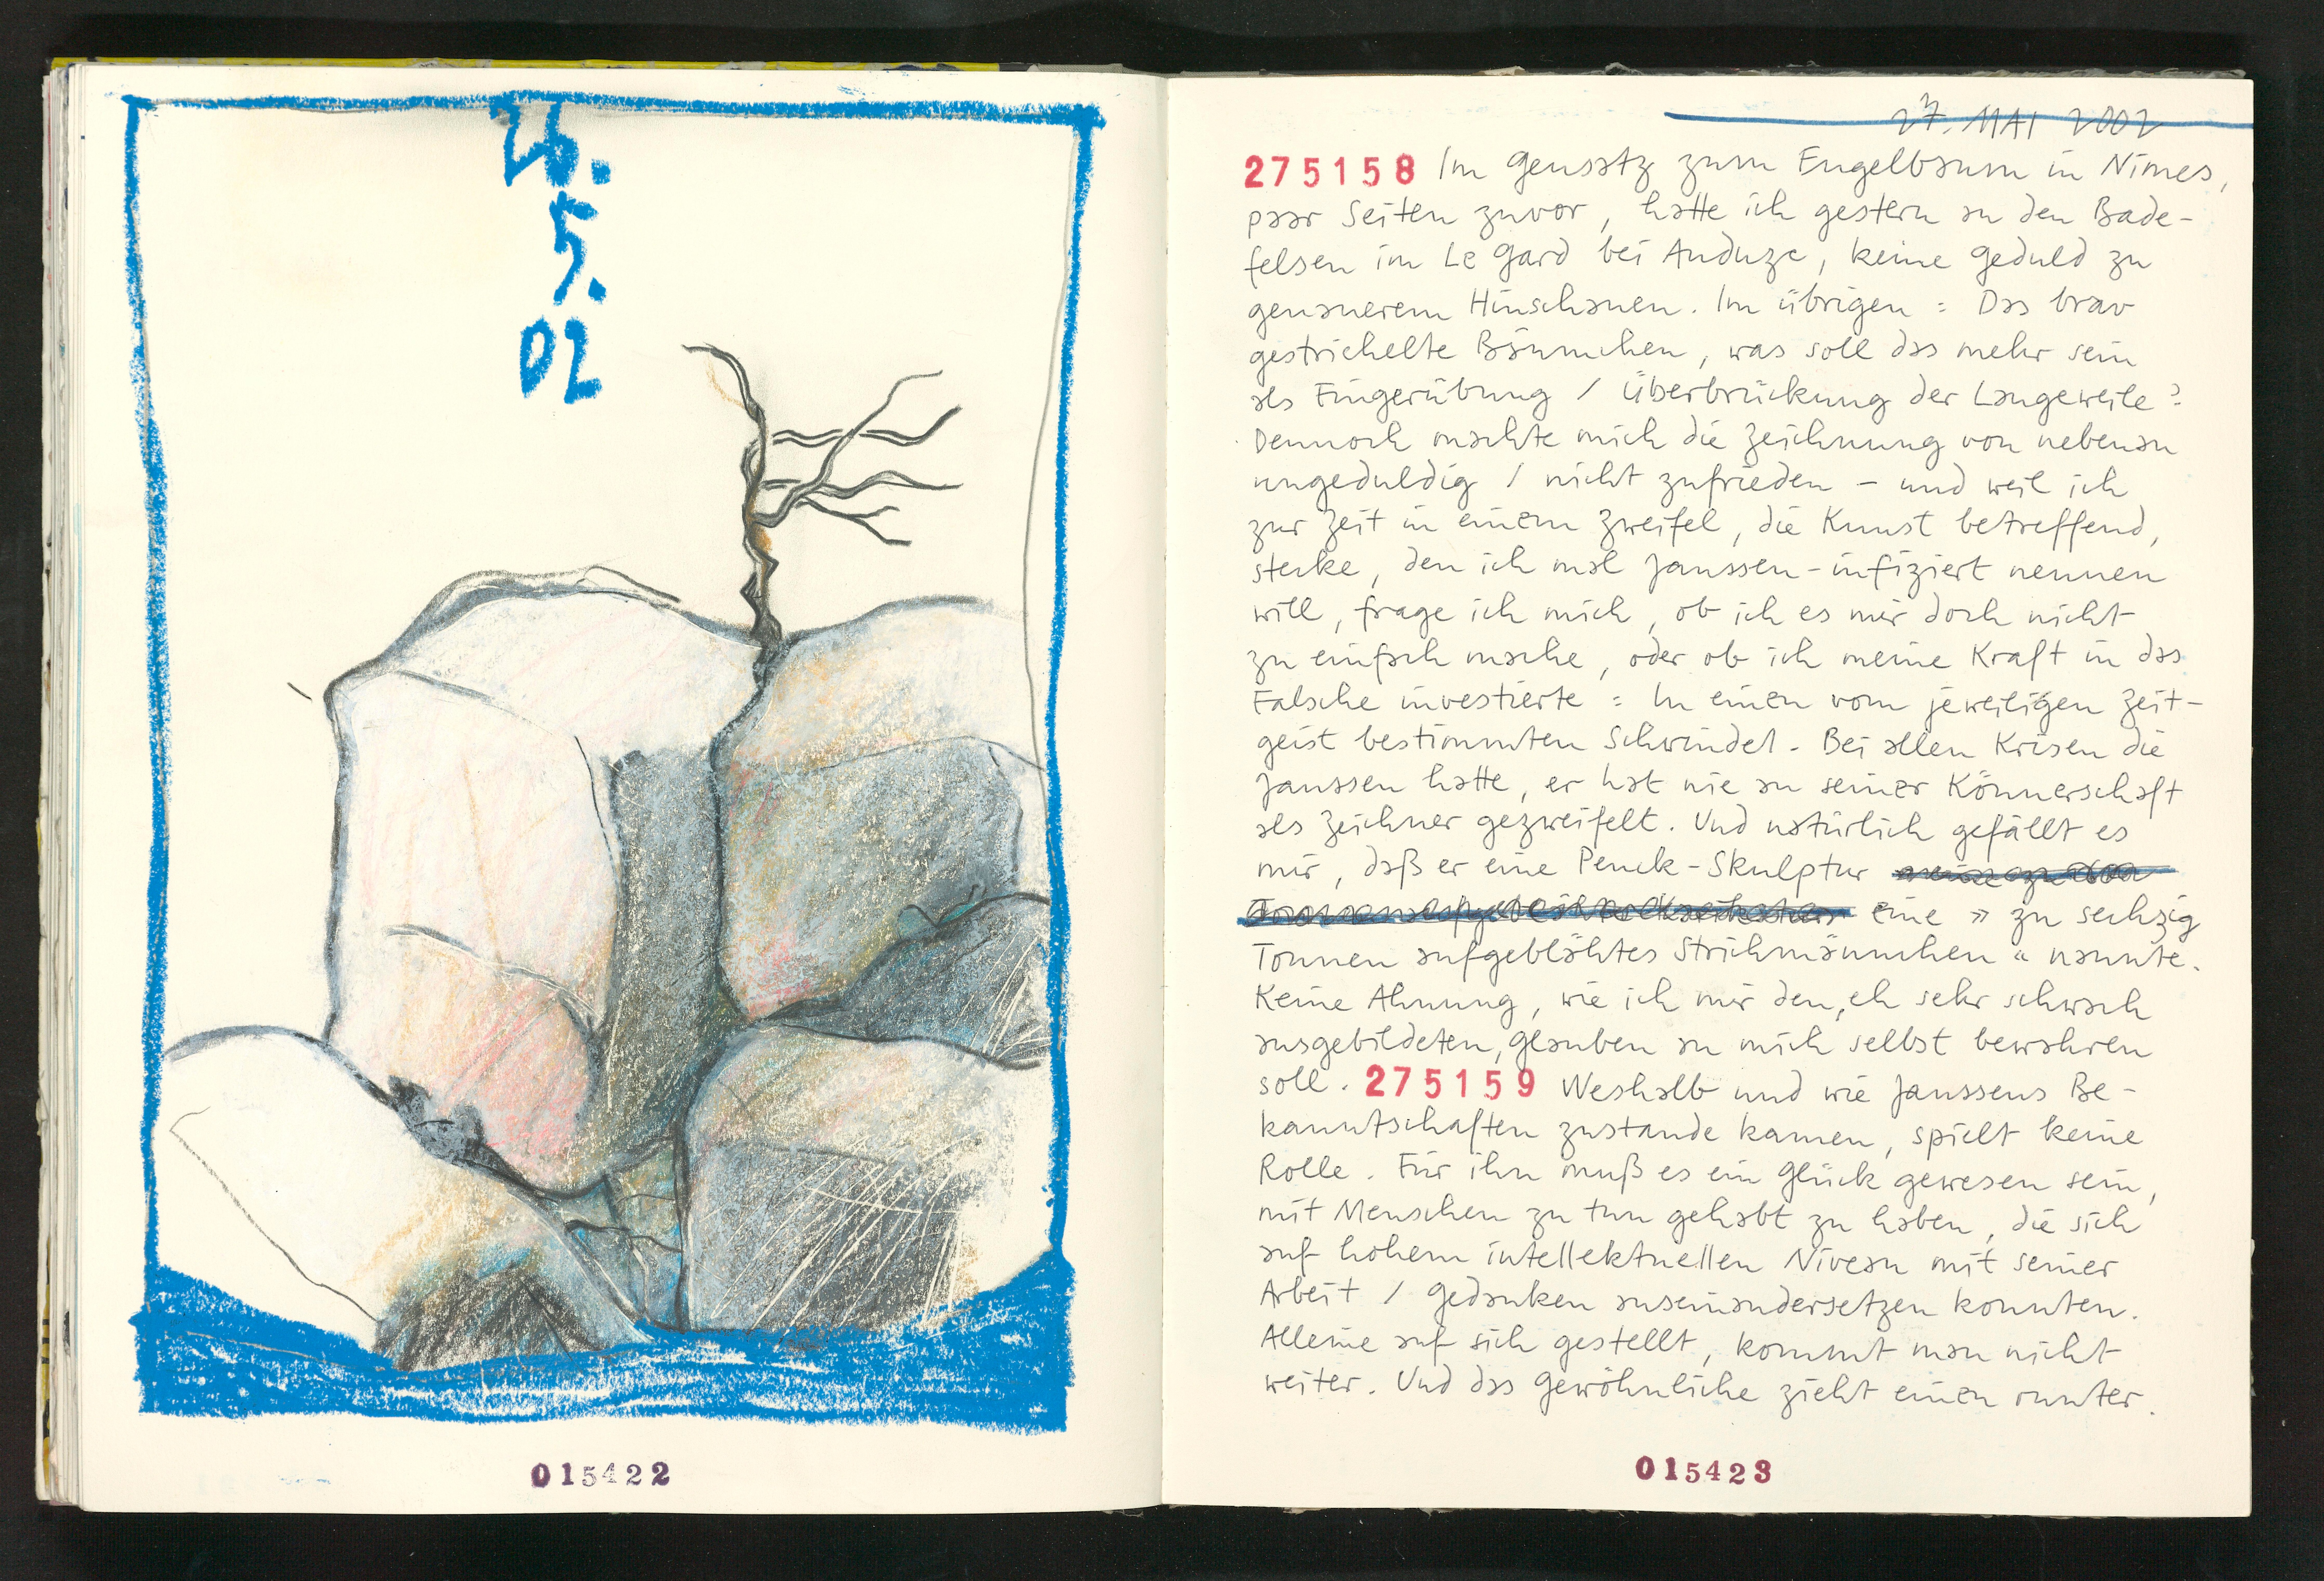 26.
5.
02
015422
27. MAI 2002
275158 Im Gensatz zum Engelbaum in Nimes,
paar Seiten zuvor, hatte ich gestern an den Bade-
felsen im Le Gard bei Anduze, keine Geduld zu
genauerem Hinschauen. Im übrigen : Das brav
gestrichelte Bäumchen, was soll das mehr sein
als Fingerübung / Überbrückung der Langeweile?
Dennoch machte mich die Zeichnung von nebenan
ungeduldig / nicht zufrieden – und weil ich
zur Zeit in einem Zweifel, die Kunst betreffend,
stecke, den ich mal Janssen-infiziert nennen
will, frage ich mich, ob ich es mir doch nicht
zu einfach mache, oder ob ich meine Kraft in das
Falsche investierte : In einen vom jeweiligen Zeit-
geist bestimmten Schwindel. Bei allen Krisen die
Janssen hatte, er hat nie an seiner Könnerschaft
als Zeichner gezweifelt. Und natürlich gefällt es
mir, daß er eine Penck-Skulptur
eine » zu sechzig
Tonnen aufgeblähtes Strichmännchen « nannte.
Keine Ahnung, wie ich mir den, eh sehr schwach
ausgebildeten, Glauben an mich selbst bewahren
soll. 275159 Weshalb und wie Janssens Be-
kanntschaften zustande kamen, spielt keine
Rolle. Für ihn muß es ein Glück gewesen sein,
mit Menschen zu tun gehabt zu haben, die sich
auf hohem intellektuellen Niveau mit seiner
Arbeit / Gedanken auseinandersetzen konnten.
Alleine auf sich gestellt, kommt man nicht
weiter. Und das Gewöhnliche zieht einen runter.
015423